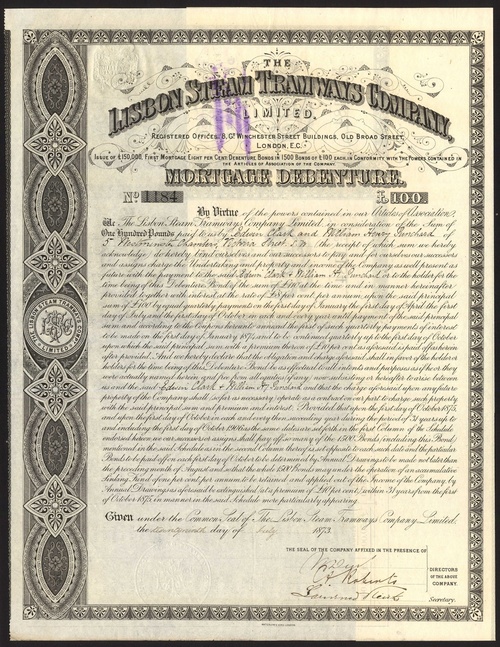 THE
LISBON STEAM TRAMWAYS COMPANY,
LIMITED.
REGISTERED OFFICES, 8, Gt. WINCHESTER STREET BUILDINGS, OLD BROAD STREET,
LONDON, E.C.
ISSUE OF £150,000, FIRST MORTGAGE EIGHT PER CENT. DEBENTURE BONDS IN 1500 BONDS OF £100 EACH, IN CONFORMITY WITH THE POWERS CONTAINED IN
THE ARTICLES OF ASSOCIATION OF THE COMPANY.
MORTGAGE DEBENTURE.
No 1184 £100
By Virtue of the powers contained in our Articles of Association,
We The Lisbon Steam Tramways Company Limited, in consideration of the Sum of
One Hundred Pounds paid to us by Edwin Clark and William Henry Punchard
5 Westminster Chambers, Victoria Street S.W. the receipt of which sum we hereby
acknowledge do hereby bind ourselves and our successors to pay and for ourselves our successors
and assigns charge the undertaking and property and income of the Company as well present as
future with the payment to the said Edwin Clark & William H. Punchard or to the holder for the
time being of this Debenture Bond of the sum of £100 at the time and in manner hereinafter
provided together with interest at the rate of £8 per cent per annum, upon the said principal
sum of £100 by quarterly payments upon the first day of January the first day of April the first
day of July and the first day of October in each and every year until payment of the said principal
sum and according to the Coupons hereto annexed the first of such quarterly payments of interest
to be made on the first day of January 1875 and to be continued quarterly up to the first day of October
upon which the said principal sum with a premium thereof of £10 per cent is as aforesaid is paid off as herein
after provided. And we hereby declare that the obligation and charge aforesaid shall in favor of the holder or
holders for the time being of this Debenture Bond be as effectual to all intents and purposes as if he or they
were actually named herein and free from all equities if any now subsisting or hereafter to arise between
us and the said Edwin Clark & William H. Punchard and that the charge aforesaid upon any future
property of the Company shall so far as necessary operate as a contract on our part to charge such property
with the said principal sum and premium and interest. Provided that upon the first day of October 1875,
and upon the first day of October in each and every then succeeding year during the period of 31 years up to
and including the first day of October 1906 as the same dates are set forth in the first Column of the Schedule
endorsed hereon we our successors or assigns shall pay off so many of the 1500 Bonds (including this Bond)
mentioned in the said Schedule as in the second Column thereof is set opposite to each such date and the particular
Bonds to be paid off on each first day of October to be determined by Annual Drawings to be made not later than
the preceding month of August and so that the whole 1500 Bonds may under the operation of an accumulative
Sinking Fund of one per cent per annum to be retained and applied out of the Income of the Company, by
Annual Drawings as aforesaid be extinguished (at a premium of £10 per cent.) within 31 years from the first
of October 1875 in manner in the said Schedule more particularly appearing.
Given under the Common Seal of The Lisbon Steam Tramways Company Limited,
the day of July 1873.
THE SEAL OF THE COMPANY AFFIXED IN THE PRESENCE OF
DIRECTORS
OF THE ABOVE
COMPANY.
Secretary.
THE LISBON STEAM TRAMWAYS COMPY
LIMITED